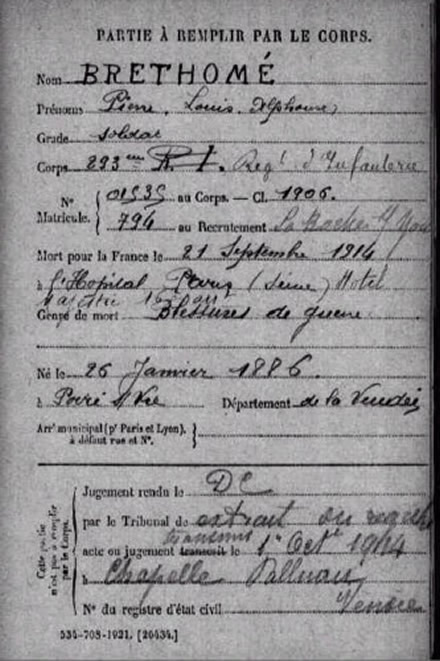 PARTIE À REMPLIR PAR LE CORPS.
Nom BRETHOMÉ
Prénoms Pierre, Louis, Alphonse
Grade soldat
Corps 293 eme R. I. Regt d'Infanterie
N° Matricule. { 01535 au Corps. — Cl. 1906.
794 au Recrutement La Roche s/ Yon
Mort pour la France le 21 Septembre 1914
à l'Hopital, Paris (Seine) Hotel
Genre de mort Blessures de guerre
Né le 26 Janvier 1886.
à Poiré s/ Vie Département de la Vendée
Arr' municipal (p' Paris et Lyon), à défaut rue et N°. }
Cette partie n'est pas à remplir par le Corps.
Jugement rendu le Dc
par le Tribunal de extrait du
acte ou jugement transcrit le transmis 1er Octe 1914
à Chapelle Palluau
N° du registre d'état civil Vendée
534-708-1921. [26434.]